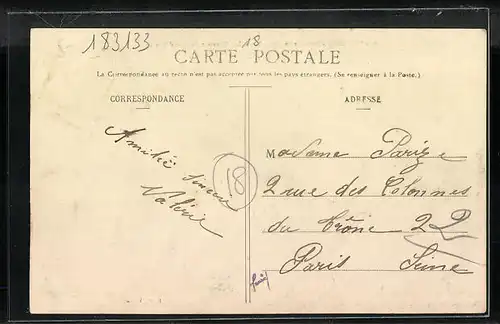 183133
18
CARTE POSTALE
La Correspondance au recto n'est pas acceptée par tous les pays étrangers. (Se renseigner à la Poste.)
CORRESPONDANCE
ADRESSE
Amitié sincère
Valérie
18
Madame Parize
2 rue des Colonnes
du Trône 22
Paris Seine